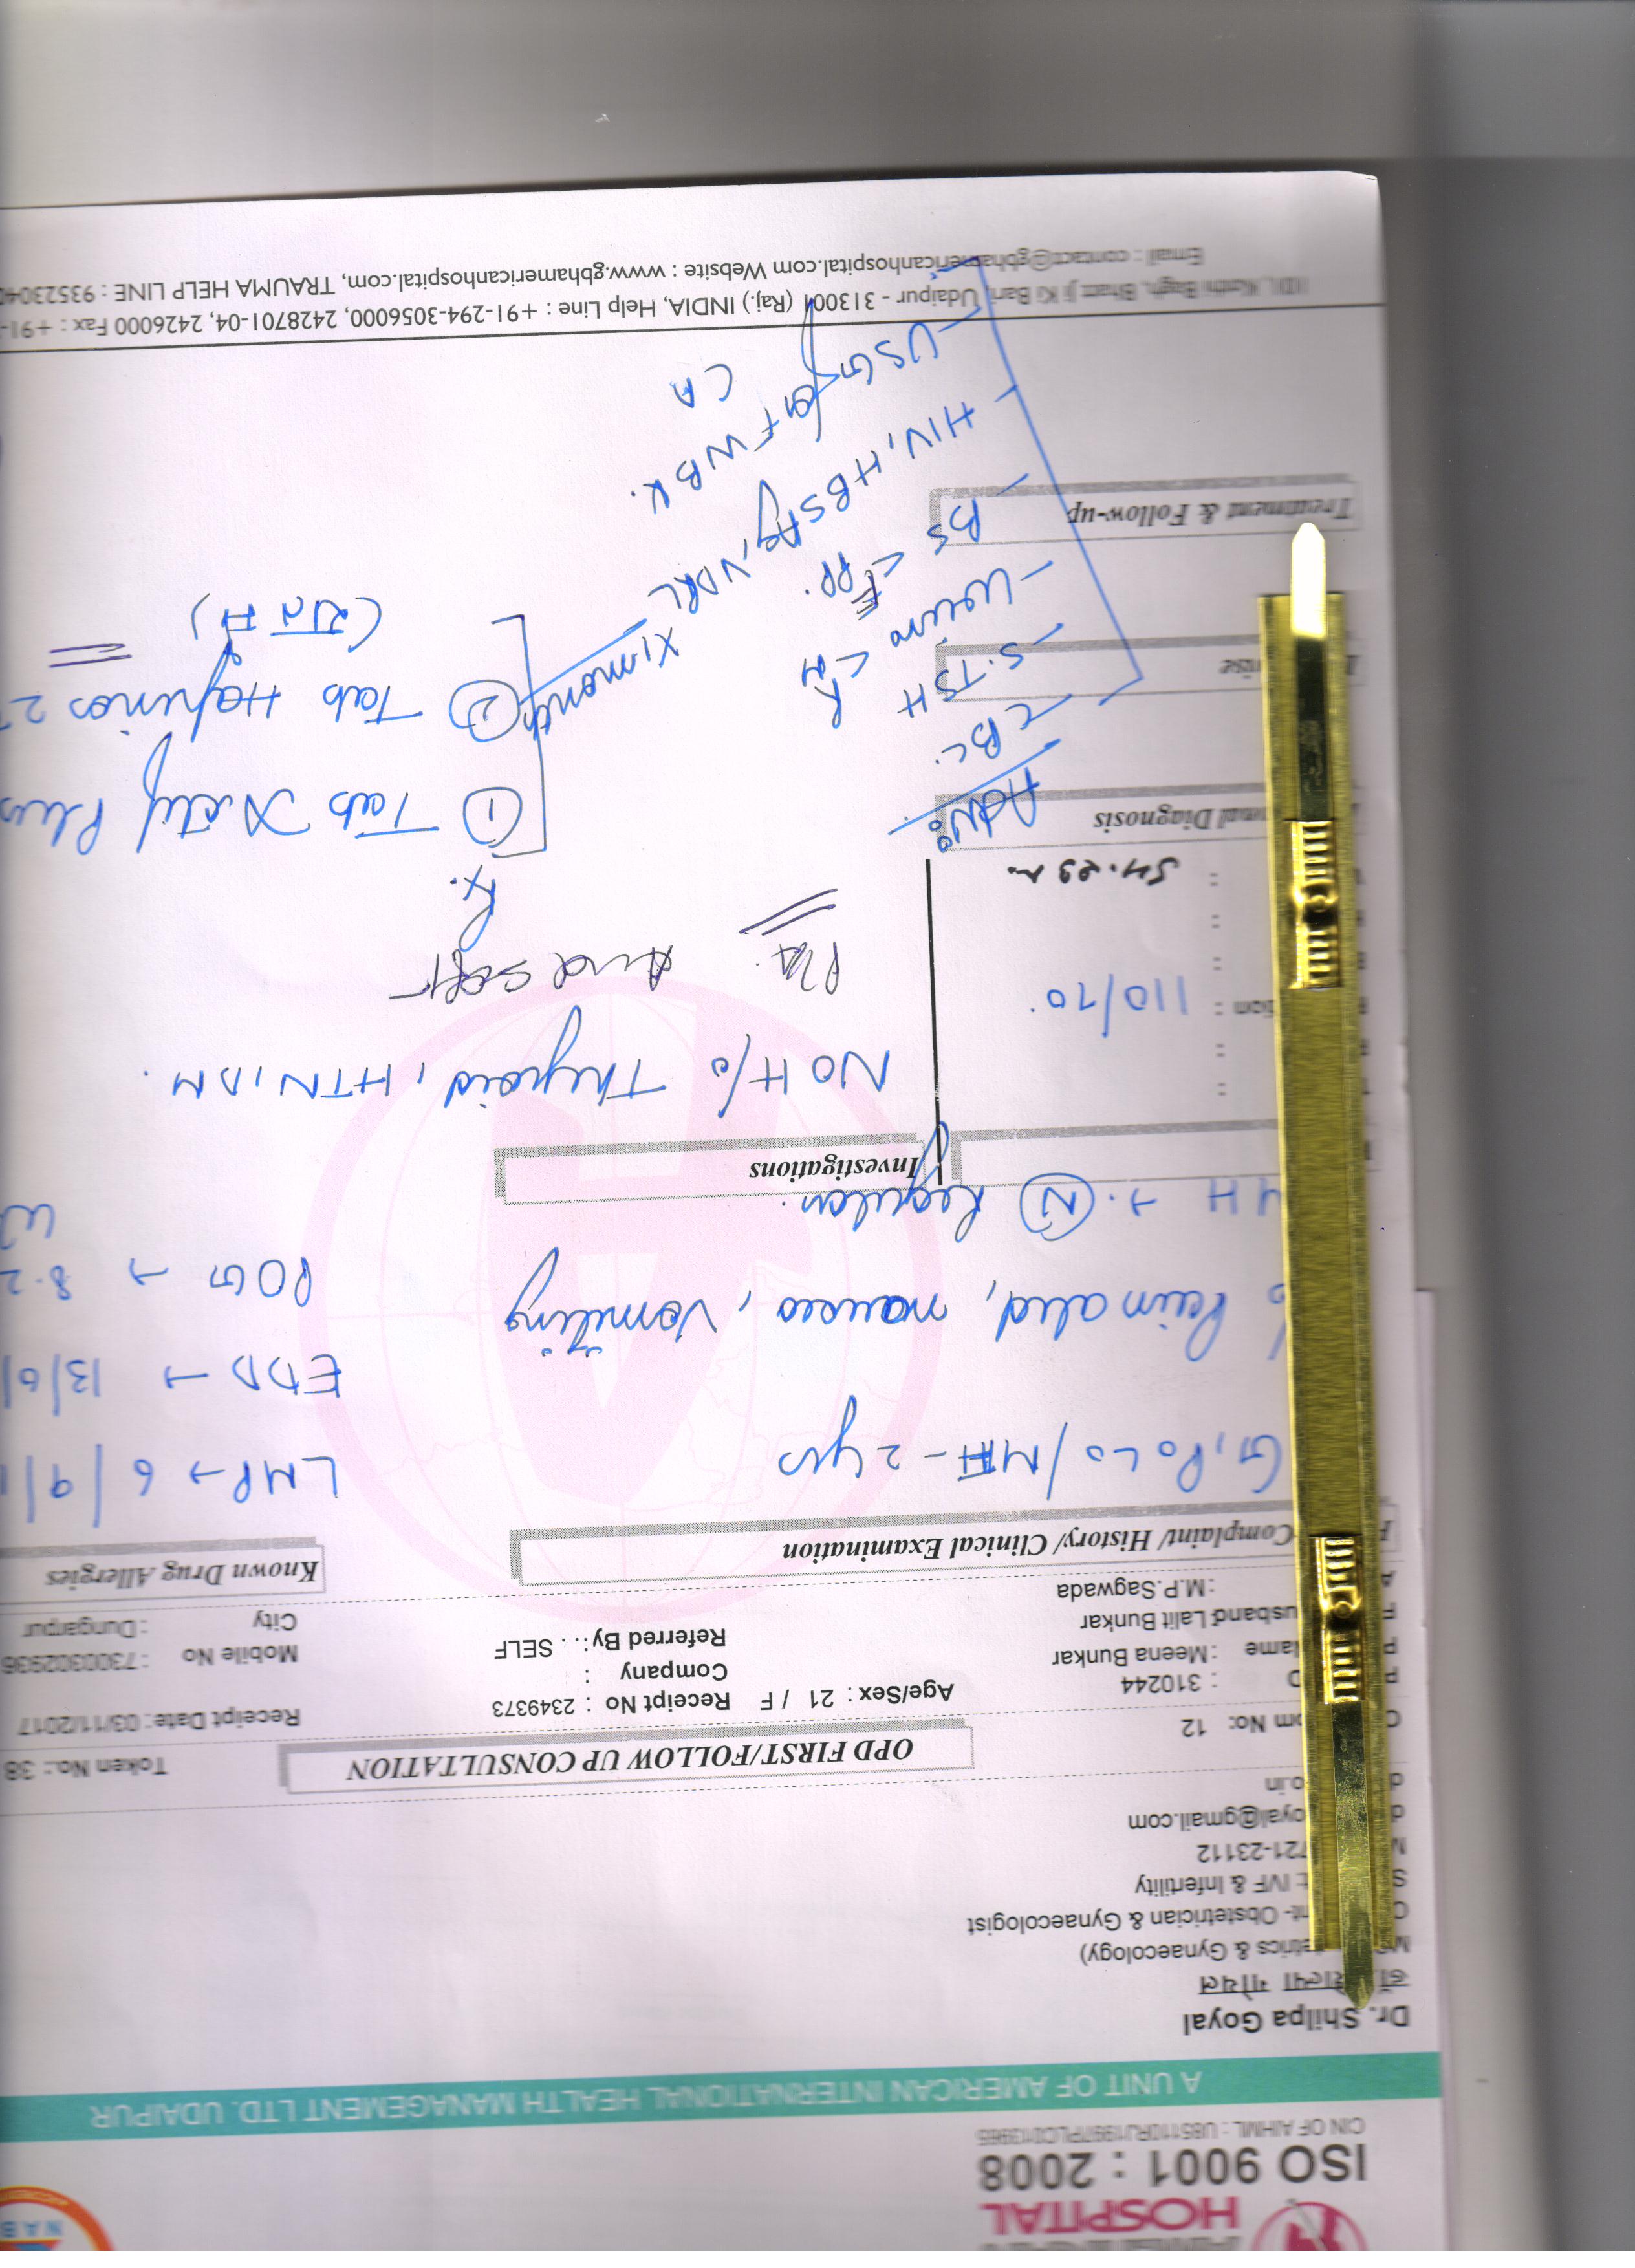 HOSPITAL
ISO 9001 : 2008
CIN OF AIHML : U85110RJ1997PLC013965
A UNIT OF AMERICAN INTERNATIONAL HEALTH MANAGEMENT LTD. UDAIPUR
Dr. Shilpa Goyal
गोयल
etrics & Gynaecology)
nt- Obstetrician & Gynaecologist
: IVF & Infertility
721-23112
oyal@gmail.com
o.in
OPD FIRST/FOLLOW UP CONSULTATION
Token No.: 38
om No: 12
Receipt Date : 03/11/2017
D : 310244
Age/Sex : 21 / F Receipt No : 2349373
Name : Meena Bunkar
Company :
Mobile No : 7300302936
usband Lalit Bunkar
Referred By : . . SELF
City : Dungarpur
: M.P.Sagwada
Complaint/ History/ Clinical Examination
Known Drug Allergies
G1 P0 L0 / MH - 2 yrs
LMP → 6 / 9 / 1
EDD → 13/6/
Pain abd, nausea, Vomiting
POG → 8.2
H → (N) Regular.
Investigations
NO H/o Thyroid, HTN, DM.
tion : 110/70
P/A. Abd soft
: 54.
Rx.
onal Diagnosis
Adv:
① Tab Plus
CBC.
S. TSH
② Tab
(रात में)
Urine C M
BS F PP.
X 1 month
Treatment & Follow-up
HIV, HBSAg, VDRL
USG for F WB &.
CA
101, Kothi Bagh, Bhatt Ji Ki Bari, Udaipur - 313001 (Raj.) INDIA, Help Line : +91-294-3056000, 2428701-04, 2426000 Fax : +91-
Email : contact@gbhamericanhospital.com Website : www.gbhamericanhospital.com, TRAUMA HELP LINE : 93523040